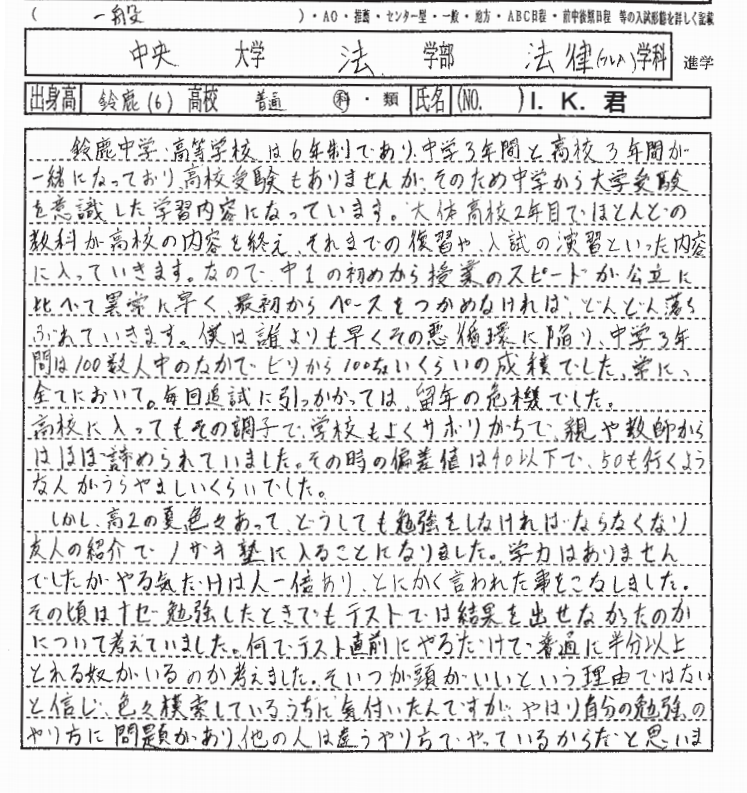 ( 一般 )・AO・推薦・センター型・一般・地方・ABC日程・前中後期日程 等の入試形態を詳しく記載
中央 大学 法 学部 法律(フレA)学科 進学
出身高 鈴鹿(6) 高校 普通 科・類 氏名 (NO. ) I. K. 君
鈴鹿中学・高等学校は6年制であり、中学3年間と高校3年間が
一緒になっており、高校受験もありませんが、そのため中学から大学受験
を意識した学習内容になっています。大体高校2年目でほとんどの
教科が高校の内容を終え、それまでの復習や、入試の演習といった内容
に入っていきます。なので、中1の初めから授業のスピードが公立に
比べて異常に早く、最初からペースをつかめなければ、どんどん落ち
ぶれていきます。僕は誰よりも早くその悪循環に陥り、中学3年
間は100数人中のなかでビリから100ないくらいの成積でした、常に、
全てにおいて。毎回追試に引っかかっては、留年の危機でした。
高校に入ってもその調子で、学校もよくサボりがちで、親や教師から
はほぼ諦められていました。その時の偏差値は40以下で、50も行くよう
な人がうらやましいくらいでした。
しかし、高2の夏色々あって、どうしても勉強をしなければならなくなり
友人の紹介でノザキ塾に入ることになりました。学力はありません
でしたがやる気だけは人一倍あり、とにかく言われた事をこなしました。
その頃はなぜ勉強したときでもテストでは結果を出せなかったのか
について考えていました。何でテスト直前にやるだけで普通に半分以上
とれる奴がいるのか考えました。そいつが頭がいいという理由ではない
と信じ、色々模索しているうちに気付いたんですが、やはり自分の勉強の
やり方に問題があり、他の人は違うやり方でやっているからだと思いま